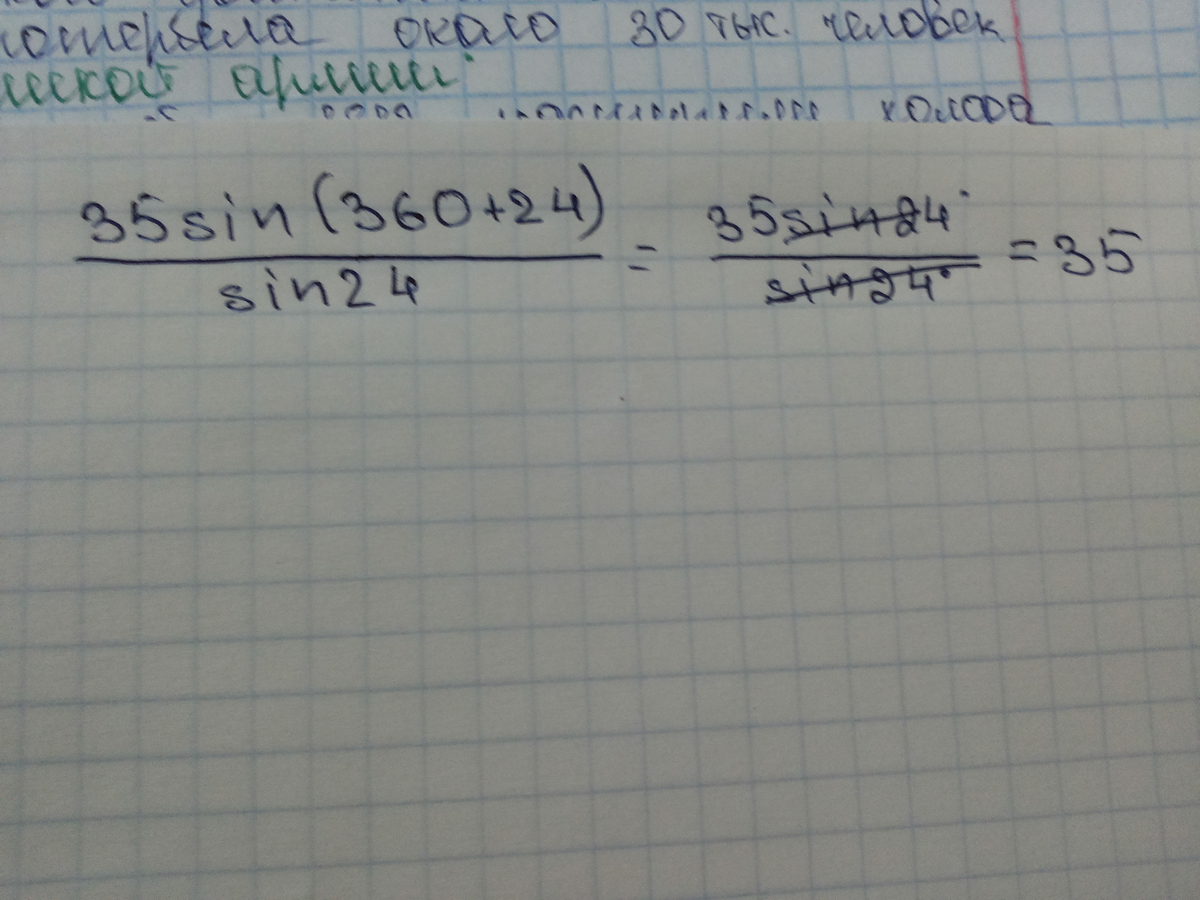 около 30 тыс. человек
армии.
холода
35sin(360+24)/sin24 = 35sin24°/sin24° = 35